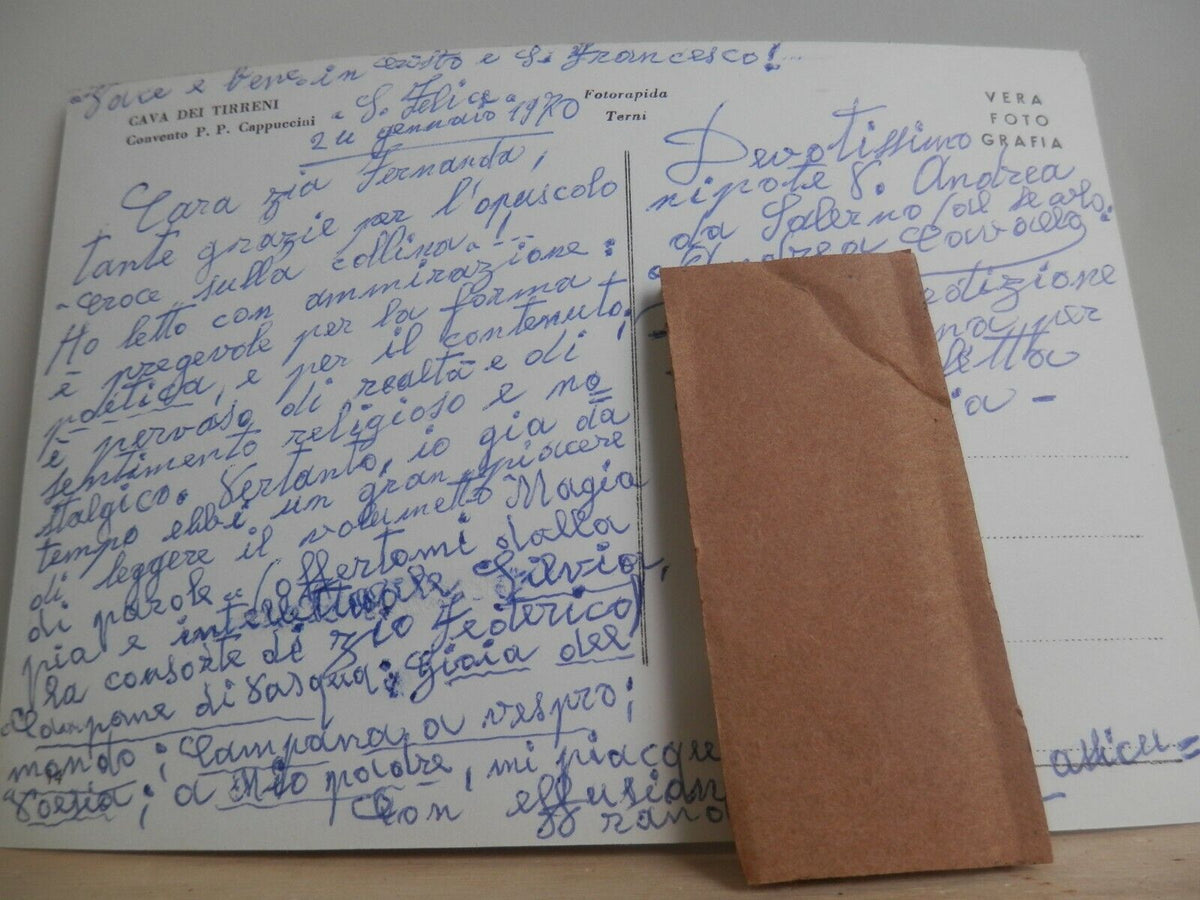 "Pace e bene in Cristo e S. Francesco!...
CAVA DEI TIRRENI
Convento P. P. Cappuccini
"S. Felice"
24 gennaio 1970
Fotorapida
Terni
VERA
FOTO
GRAFIA
Cara zia Fernanda,
tante grazie per l'opuscolo
"Croce sulla collina"!...
Ho letto con ammirazione:
è pregevole per la forma
poetica, e per il contenuto;
è pervaso di realtà e di
sentimento religioso e no=
stalgico. Pertanto, io già da
tempo ebbi un gran piacere
di leggere il volumetto Magia
di parole" (offertomi dalla
pia e intellettuale Silvia,
la consorte di zio Federico)
"Campane di Pasqua; Gioia del
mondo; Campana a vespro;
"Poesia; a Mio padre, mi piacqu
Con effusion
Devotissimo
nipote P. Andrea
da Salerno (al secolo:
Andrea Cavallo
edizione
per
detta
ia -